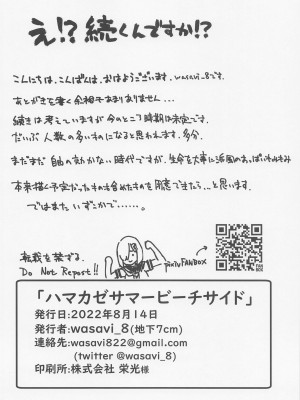 え!? 続くんですか!?
こんにちは、こんばんは、おはようございます。wasavi_8です。
あとがきを書く余裕があまりありません...
続きは考えていますが今のところ時期は未定です。
だいぶ人数の多いものになると思われます。多分。
まだまだ自由の効かない時代ですが、生命を大事に
本来描く予定だったものも含めたものを用意できたら...と思います。
ではまたいずこかで......。
転載を禁ずる
Do Not Report!!
pixivFANBOX
「ハマカゼサマービーチサイド」
発行日:2022年8月14日
発行者:wasavi_8(地下7cm)
連絡先:wasavi822@gmail.com
(twitter @wasavi_8)
印刷所:株式会社 栄光様